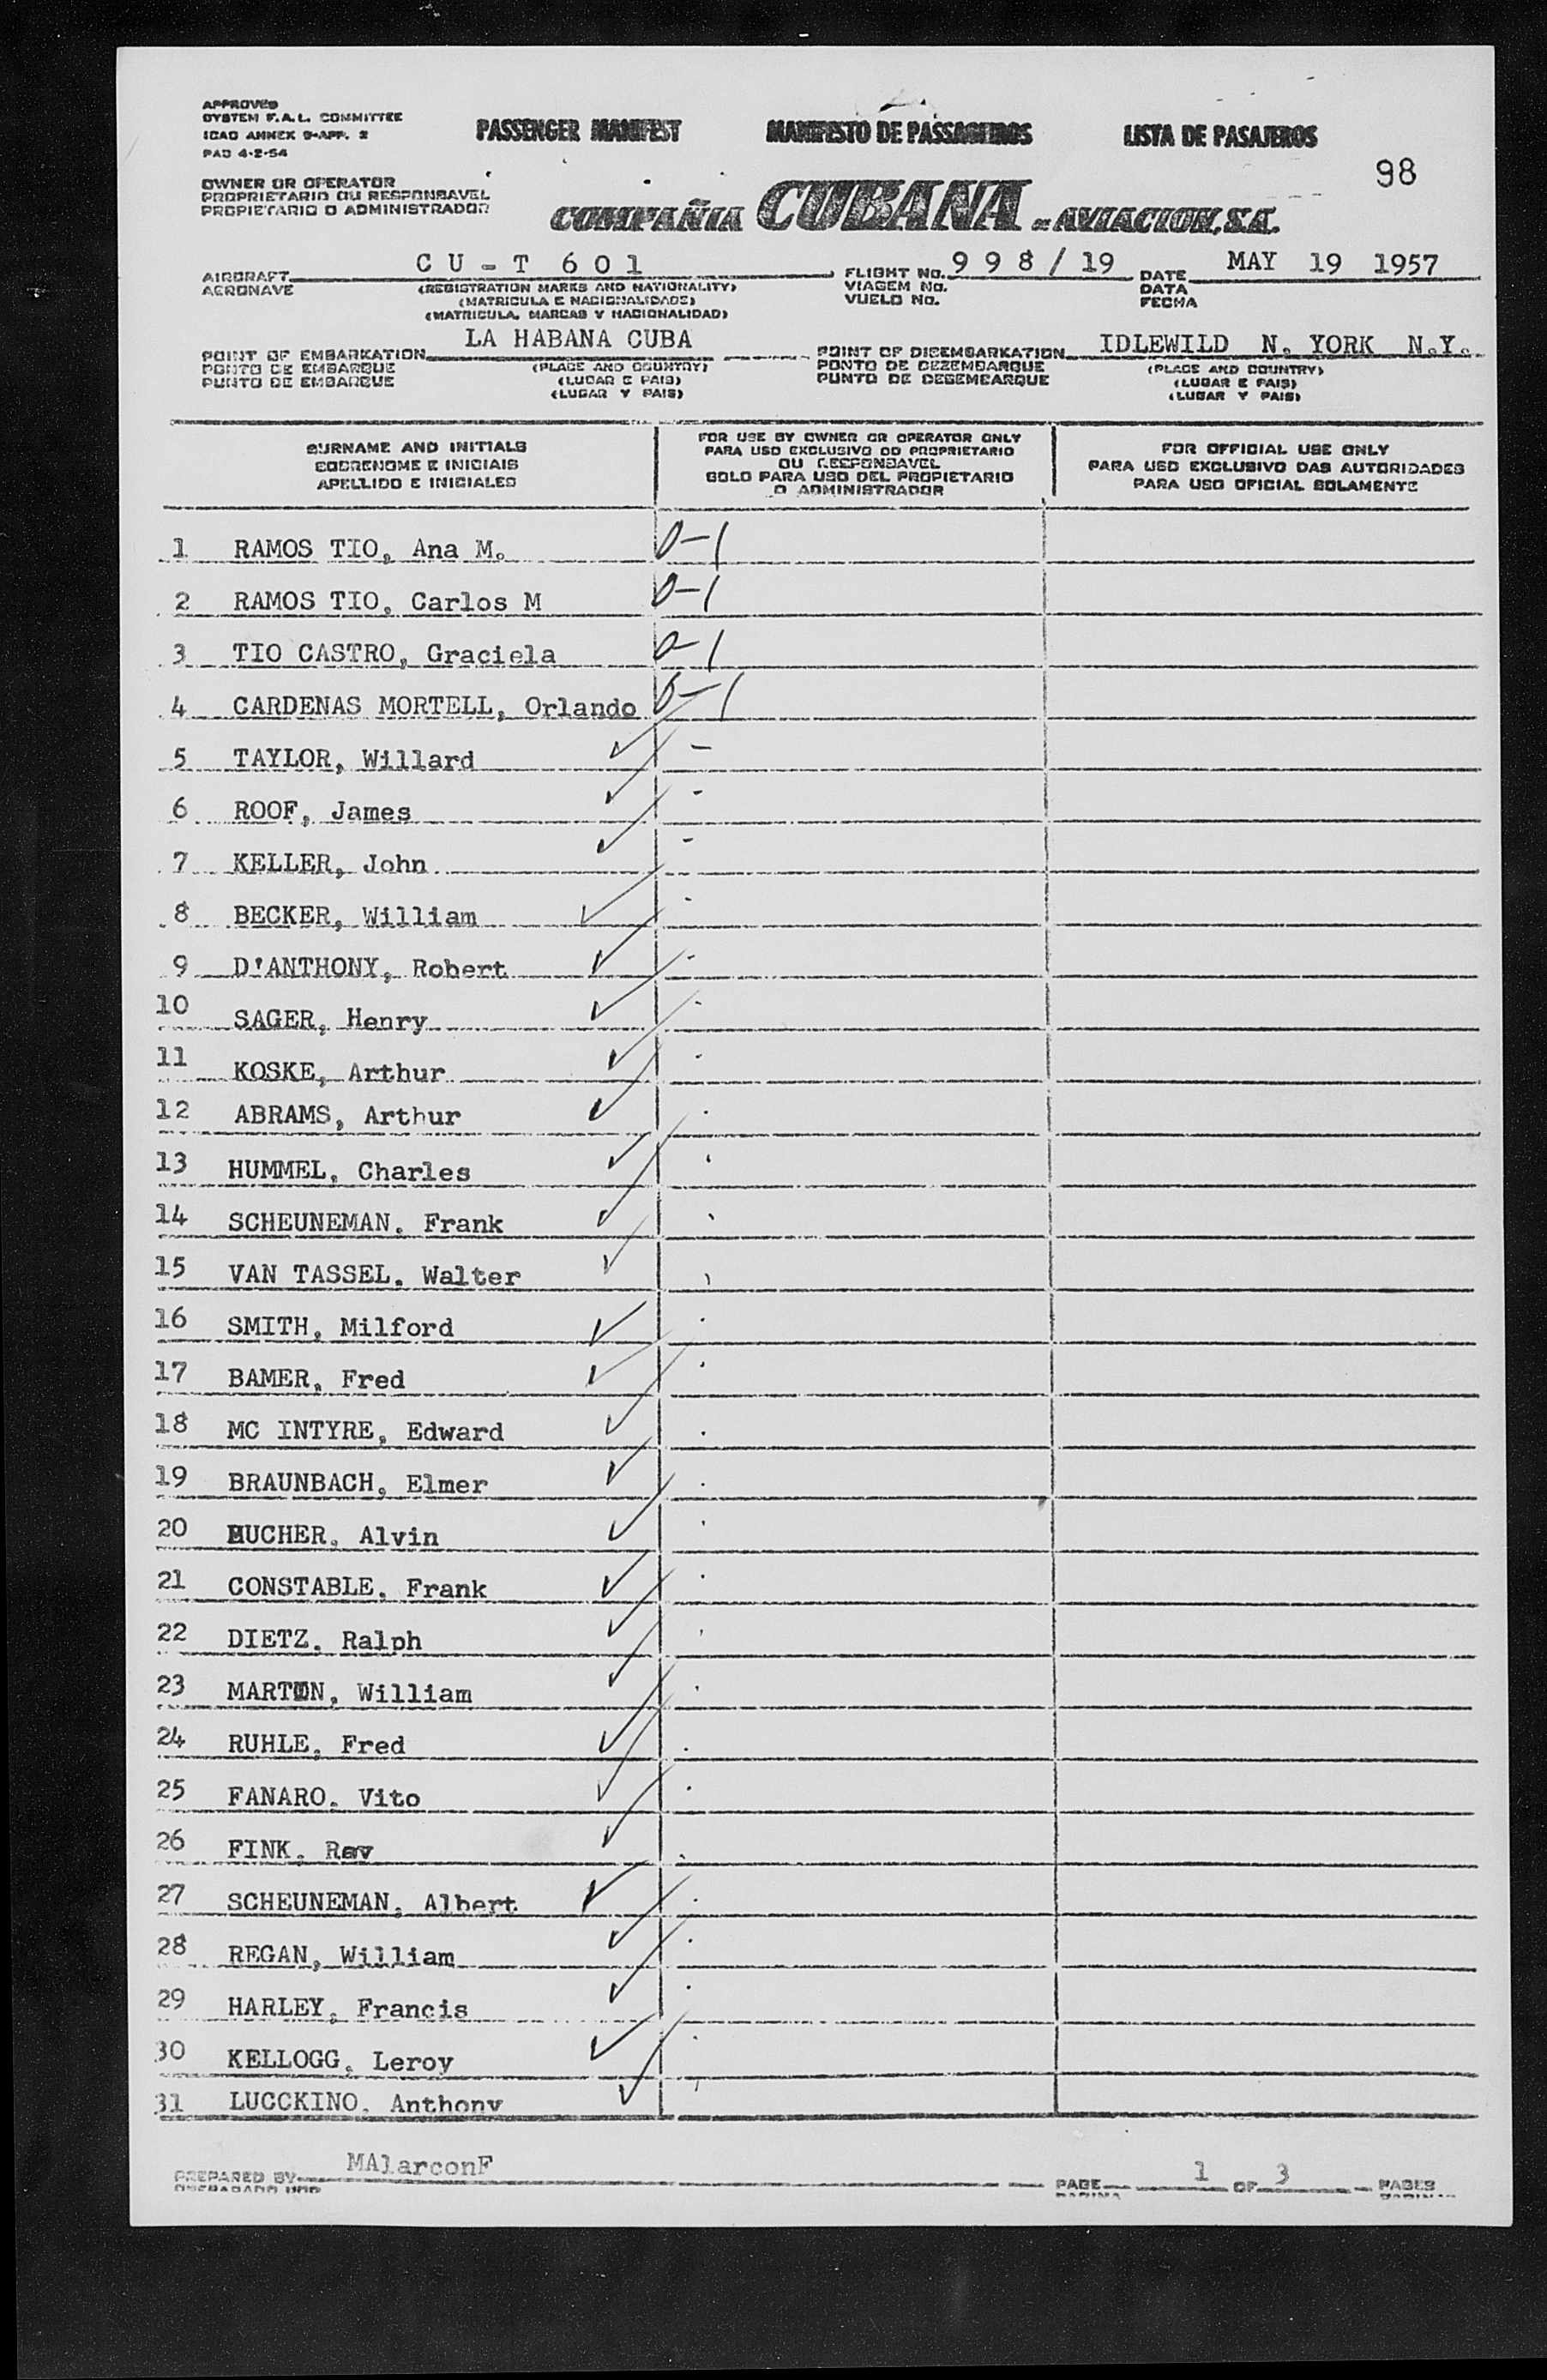 APPROVED
SYSTEM F.A.L. COMMITTEE
ICAO ANNEX 9-APP. 2
PAD 4-2-54
PASSENGER MANIFEST MANIFESTO DE PASSAGEIROS LISTA DE PASAJEROS
98
OWNER OR OPERATOR
PROPRIETARIO OU RESPONSAVEL
PROPIETARIO O ADMINISTRADOR
COMPAÑIA CUBANA DE AVIACION, S.A.
AIRCRAFT CU-T 601 FLIGHT No. 998/19 DATE MAY 19 1957
AERONAVE (REGISTRATION MARKS AND NATIONALITY) VIAGEM No. DATA
(MATRICULA E NACIONALIDADE) VUELO No. FECHA
(MATRICULA, MARCAS Y NACIONALIDAD)
POINT OF EMBARKATION LA HABANA CUBA POINT OF DISEMBARKATION IDLEWILD N. YORK N.Y.
PONTO DE EMBARQUE (PLACE AND COUNTRY) PONTO DE DEZEMBARQUE (PLACE AND COUNTRY)
PUNTO DE EMBARQUE (LUGAR E PAIS) PUNTO DE DESEMBARQUE (LUGAR E PAIS)
(LUGAR Y PAIS) (LUGAR Y PAIS)
SURNAME AND INITIALS
SOBRENOME E INICIAIS
APELLIDO E INICIALES
FOR USE BY OWNER OR OPERATOR ONLY
PARA USO EXCLUSIVO DO PROPRIETARIO
OU RESPONSAVEL
SOLO PARA USO DEL PROPIETARIO
O ADMINISTRADOR
FOR OFFICIAL USE ONLY
PARA USO EXCLUSIVO DAS AUTORIDADES
PARA USO OFICIAL SOLAMENTE
1 RAMOS TIO, Ana M. 0-1
2 RAMOS TIO, Carlos M 0-1
3 TIO CASTRO, Graciela 0-1
4 CARDENAS MORTELL, Orlando 0-1
5 TAYLOR, Willard ✓ -
6 ROOF, James ✓ -
7 KELLER, John ✓ -
8 BECKER, William ✓
9 D'ANTHONY, Robert ✓
10 SAGER, Henry ✓
11 KOSKE, Arthur ✓
12 ABRAMS, Arthur ✓
13 HUMMEL, Charles ✓
14 SCHEUNEMAN, Frank ✓
15 VAN TASSEL, Walter ✓
16 SMITH, Milford ✓
17 BAMER, Fred ✓
18 MC INTYRE, Edward ✓
19 BRAUNBACH, Elmer ✓
20 Alvin ✓
21 CONSTABLE, Frank ✓
22 DIETZ, Ralph ✓
23 William ✓
24 RUHLE, Fred ✓
25 FANARO, Vito ✓
26 FINK, Ray ✓
27 SCHEUNEMAN, Albert ✓
28 REGAN, William ✓
29 HARLEY, Francis ✓
30 KELLOGG, Leroy ✓
31 LUCCKINO, Anthony ✓
PREPARED BY MAlarconF PAGE 1 OF 3 PAGES